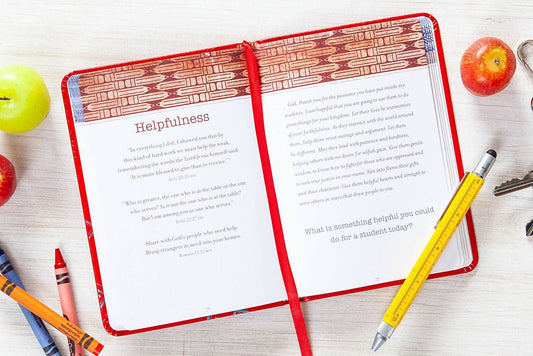 Helpfulness
"In everything I did, I showed you that by
this kind of hard work we must help the weak,
remembering the words the Lord Jesus himself said:
'It is more blessed to give than to receive.'"
Acts 20:35 NIV
"Who is greater, the one who is at the table or the one
who serves? Is it not the one who is at the table?
But I am among you as one who serves."
Luke 22:27 NIV
Share with God's people who need help.
Bring strangers in need into your homes.
Romans 12:13 NCV
God, thank you for the passions you have put inside my
students. I am hopeful that you are going to use them to do
great things for your kingdom. Let their lives be testimonies
of your faithfulness. As they interact with the world around
them, help them most encourage and argument. Let them
be different. May they lead with patience and kindness,
helping others with no desire for selfish gain. Give them gentle
wisdom to know how to fight for those who are oppressed and
to seek true justice in your name. Fan into flame their gifts
and their character. Give them helpful hearts and strength to
serve others in ways that draw people to you.
What is something helpful you could
do for a student today?